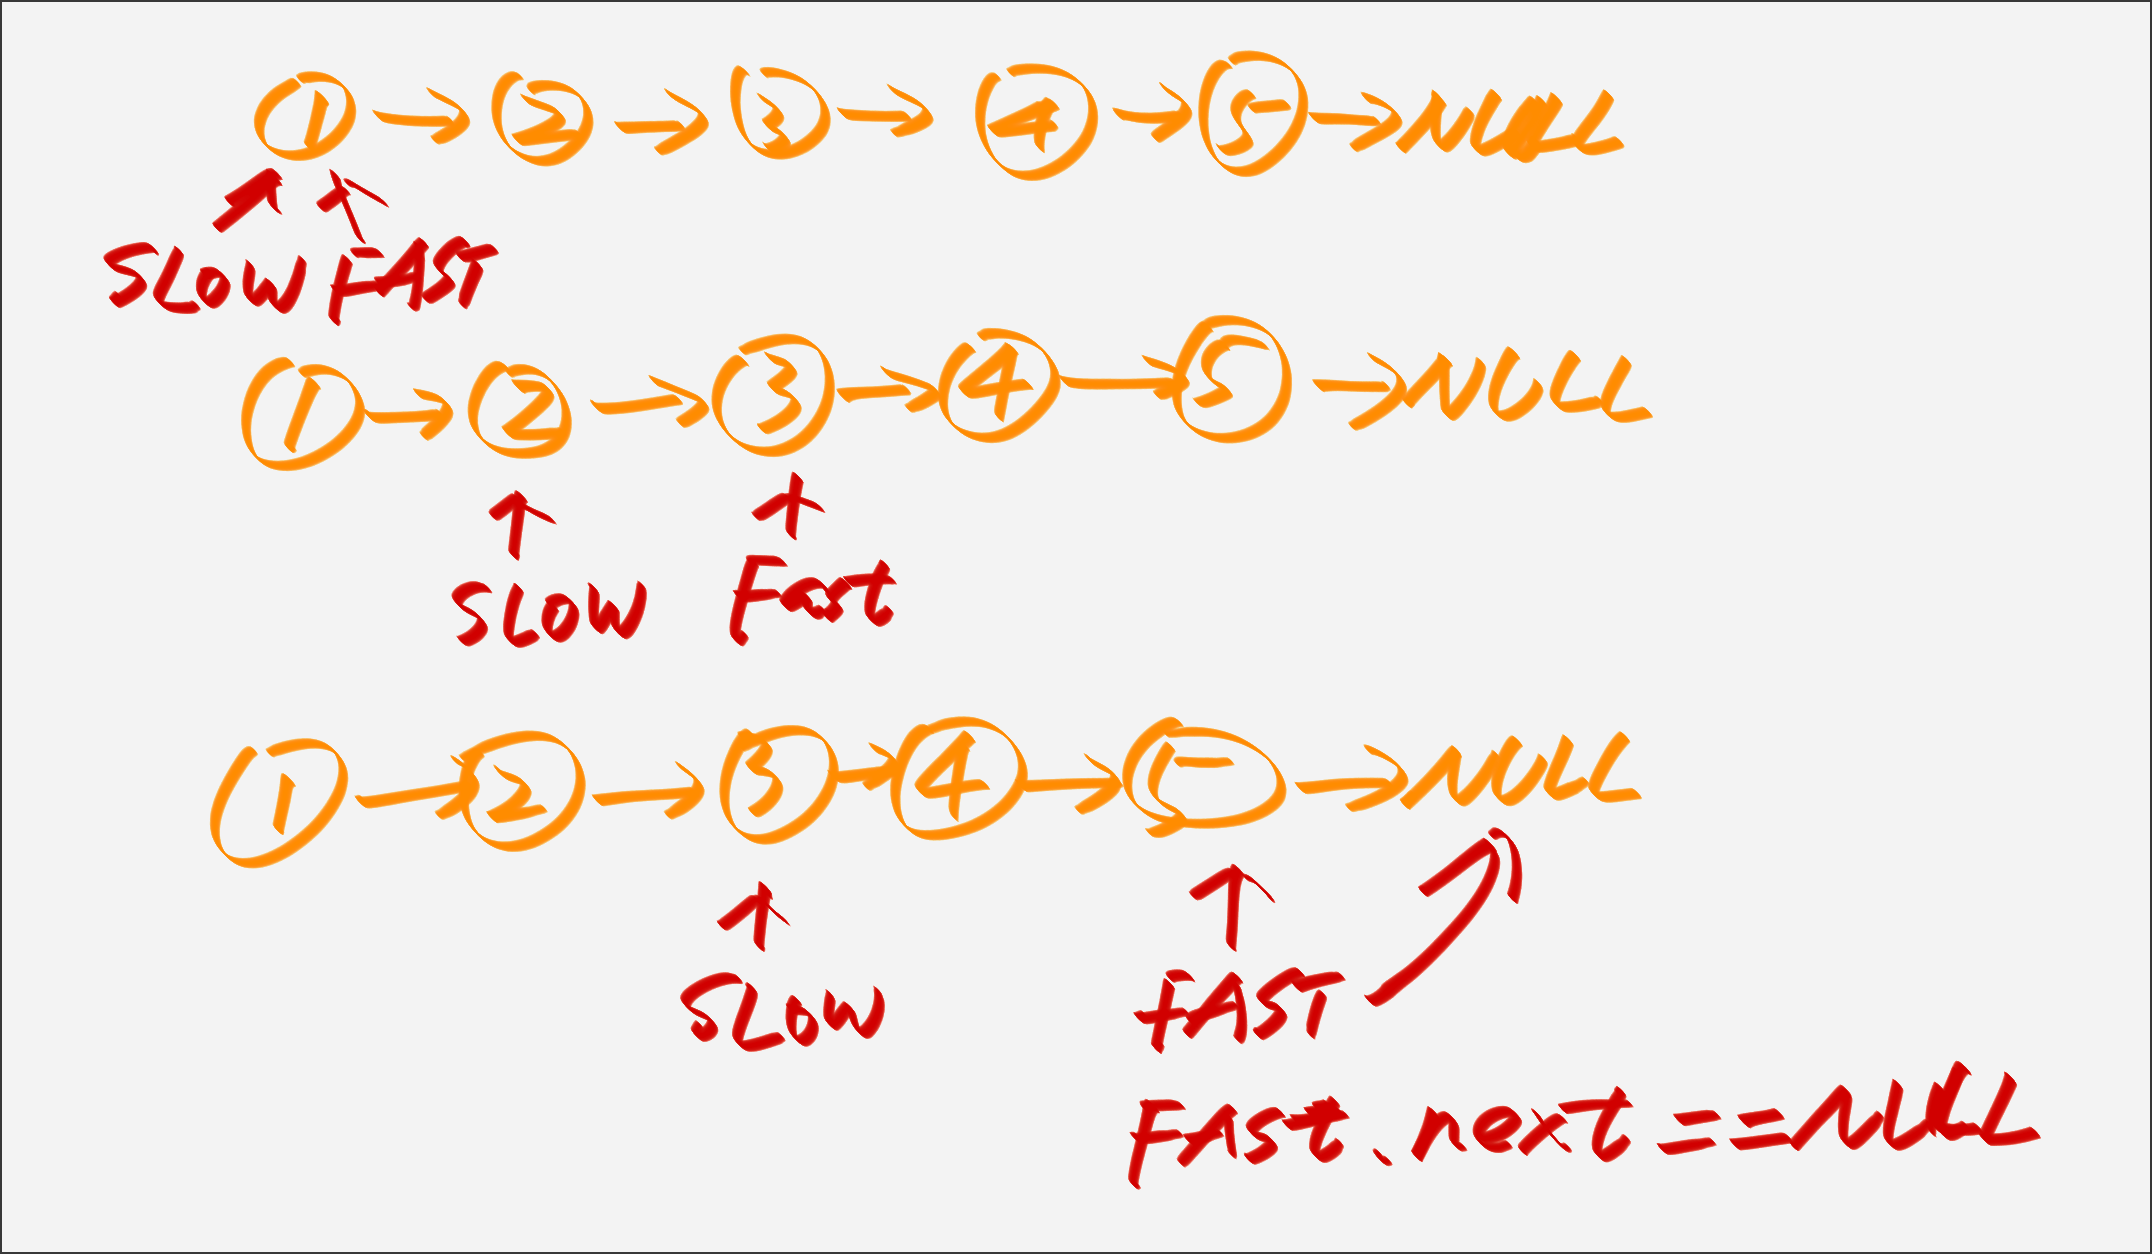 1 → 2 → 3 → 4 → 5 → NULL
SLOW FAST
1 → 2 → 3 → 4 → 5 → NULL
SLOW Fast
1 → 2 → 3 → 4 → 5 → NULL
SLOW FAST
FASt.next == NULL